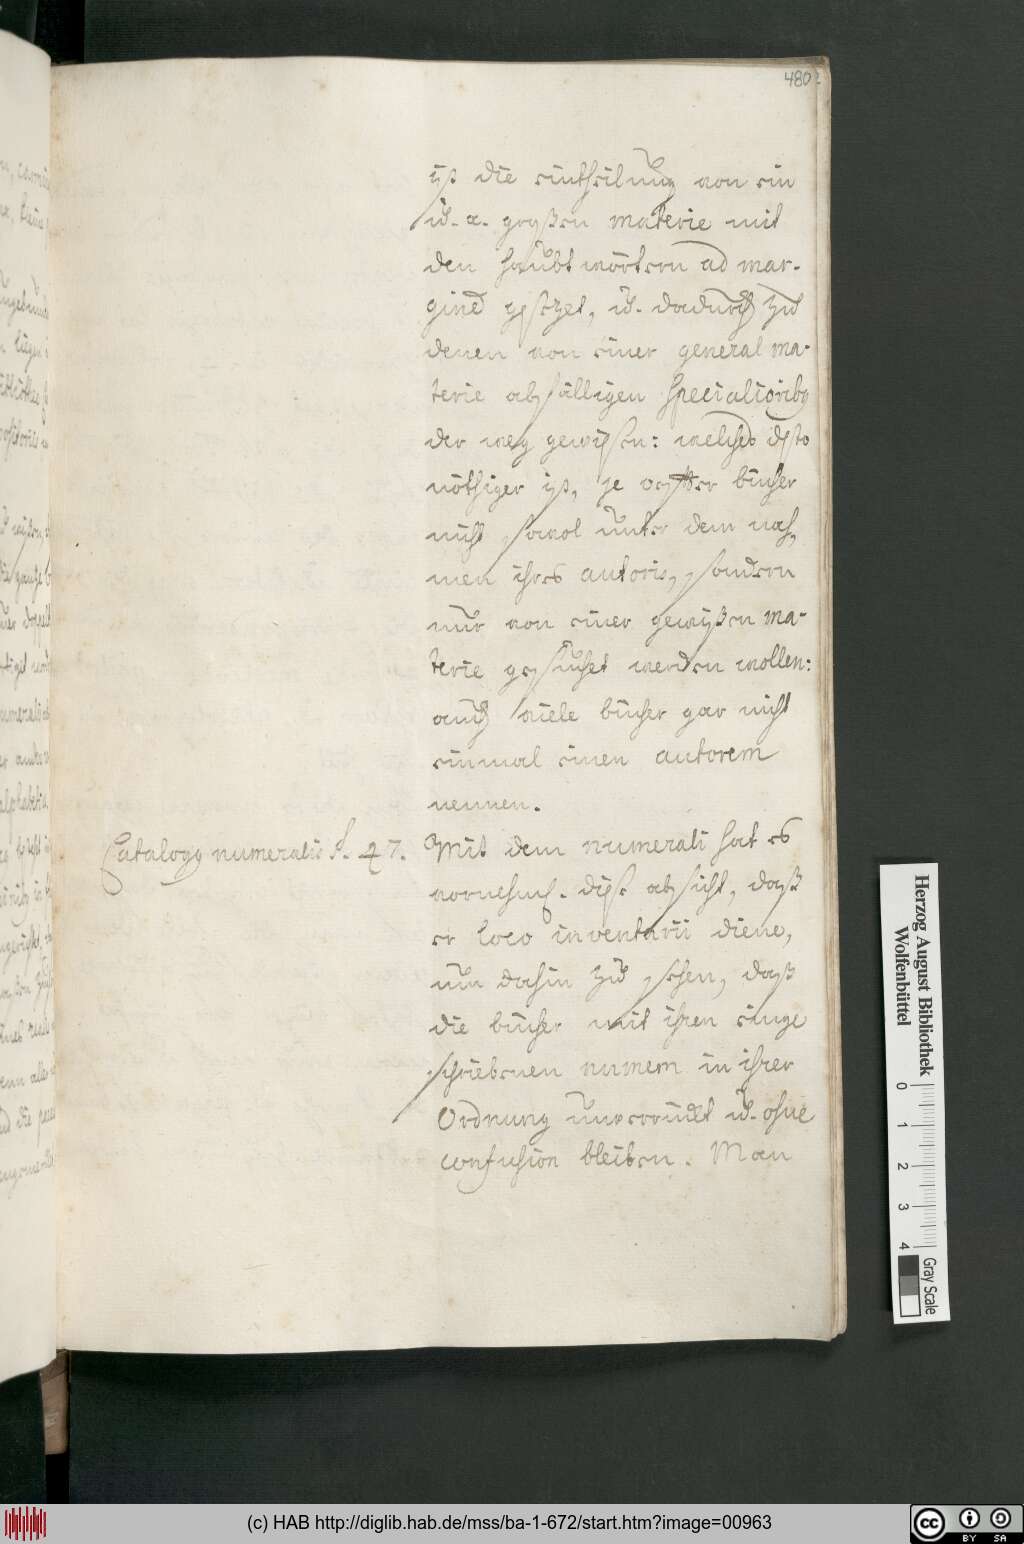 480
ist die eintheilung von ein
u. a. großen materie mit
den haubtwörtern ad mar-
ginem gesezet, u. dadurch zu
denen von einer general ma-
terie abfälligen specialioribus
der weg gewiesen: welches desto
nöthiger ist, je öffter bücher
nicht sowol unter dem nah-
men ihres autoris, sondern
nur von einer gewißen ma-
terie gesuchet werden wollen:
auch viele bücher gar nicht
einmal einen autorem
nennen.
Catalogus numeralis §. 47.
Mit dem numerali hat es
vornehml. diese absicht, daß
er loco inventarii diene,
um dahin zu sehen, daß
die bücher mit ihren einge
schriebenen numern in ihrer
Ordnung unverrückt u. ohne
confusion bleiben. Man
Herzog August Bibliothek
Wolfenbüttel
0 1 2 3 4
Gray Scale
(c) HAB http://diglib.hab.de/mss/ba-1-672/start.htm?image=00963
cc BY SA